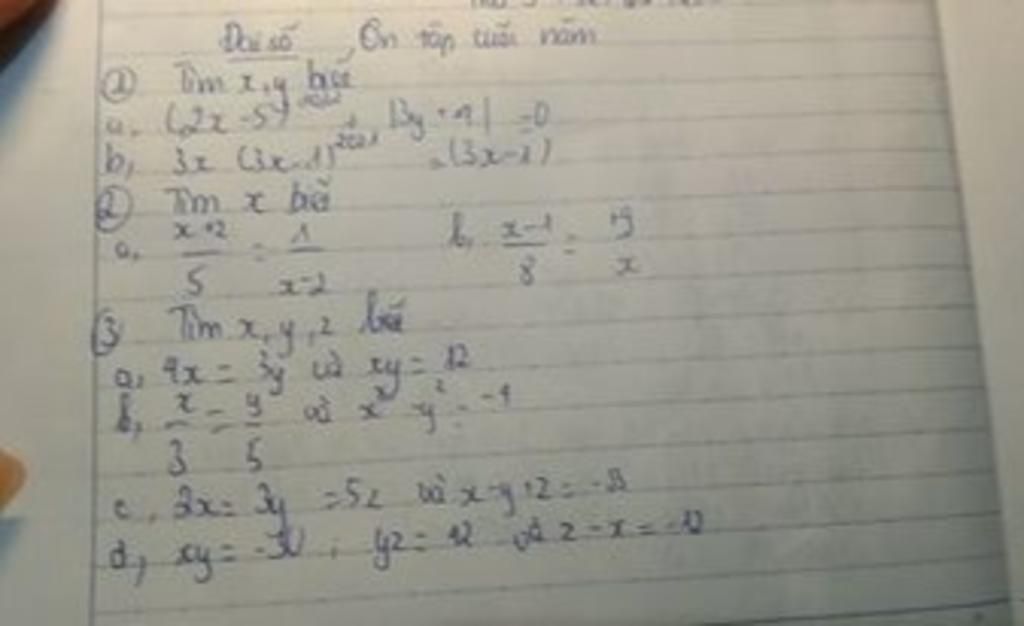 Đại số, Ôn tập cuối năm
① Tìm x, y biết
a, (2x - 5)²⁰²² + |3y + 4| = 0
b, 3x (3x - 1)²⁰²¹ = (3x - 1)
② Tìm x biết
a, x+2/5 = 1/x-2 b, x-1/8 = 9/x
③ Tìm x, y, z biết
a, 4x = 3y và xy = 12
b, x/3 = y/5 và x² y² = -4
c, 2x = 3y = 5z và x - y + z = -33
d, xy = -30 ; yz = 42 và z - x = -12